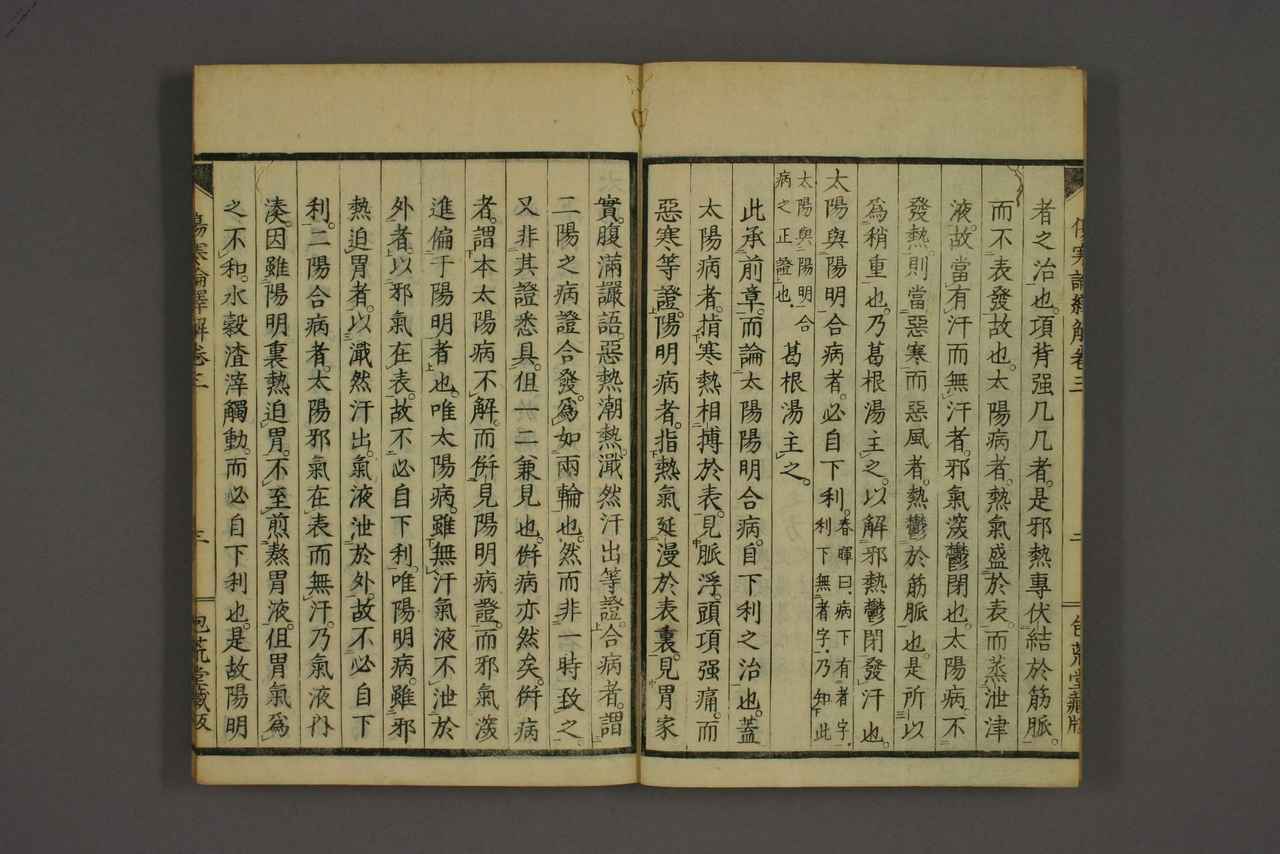 者之治也。項背强几几者。是邪熱專伏結於筋脈。
而不表發故也。太陽病者。熱氣盛於表。而蒸泄津
液。故當有汗而無汗者。邪氣深鬱閉也。太陽病不
發熱。則當惡寒而惡風者。熱鬱於筋脈也。是所以
爲稍重也。乃葛根湯主之。以解邪熱鬱閉發汗也。
太陽與陽明合病者。必自下利。春暉曰、病下有者字、
利下無者字、乃知此
太陽與陽明合
病之正證也、
葛根湯主之。
此承前章。而論太陽陽明合病。自下利之治也。蓋
太陽病者。指寒熱相搏於表。見脈浮。頭項强痛。而
惡寒等證。陽明病者。指熱氣延漫於表裏。見胃家
實。腹滿讝語。惡熱潮熱。濈然汗出等證。合病者。謂
二陽之病證合發。爲如兩輪也。然而非一時致之。
又非其證悉具。但一二兼見也。併病亦然矣。併病
者。謂本太陽病不解。而併見陽明病證。而邪氣深
進偏于陽明者也。唯太陽病。雖無汗氣液不泄於
外者。以邪氣在表。故不必自下利。唯陽明病。雖邪
熱迫胃者。以濈然汗出。氣液泄於外。故不必自下
利。二陽合病者。太陽邪氣在表而無汗。乃氣液内
湊。因雖陽明裏熱迫胃。不至煎熬胃液。但胃氣爲
之不和。水穀渣滓觸動。而必自下利也。是故陽明
傷寒論繹解卷三
三
包荒堂藏版